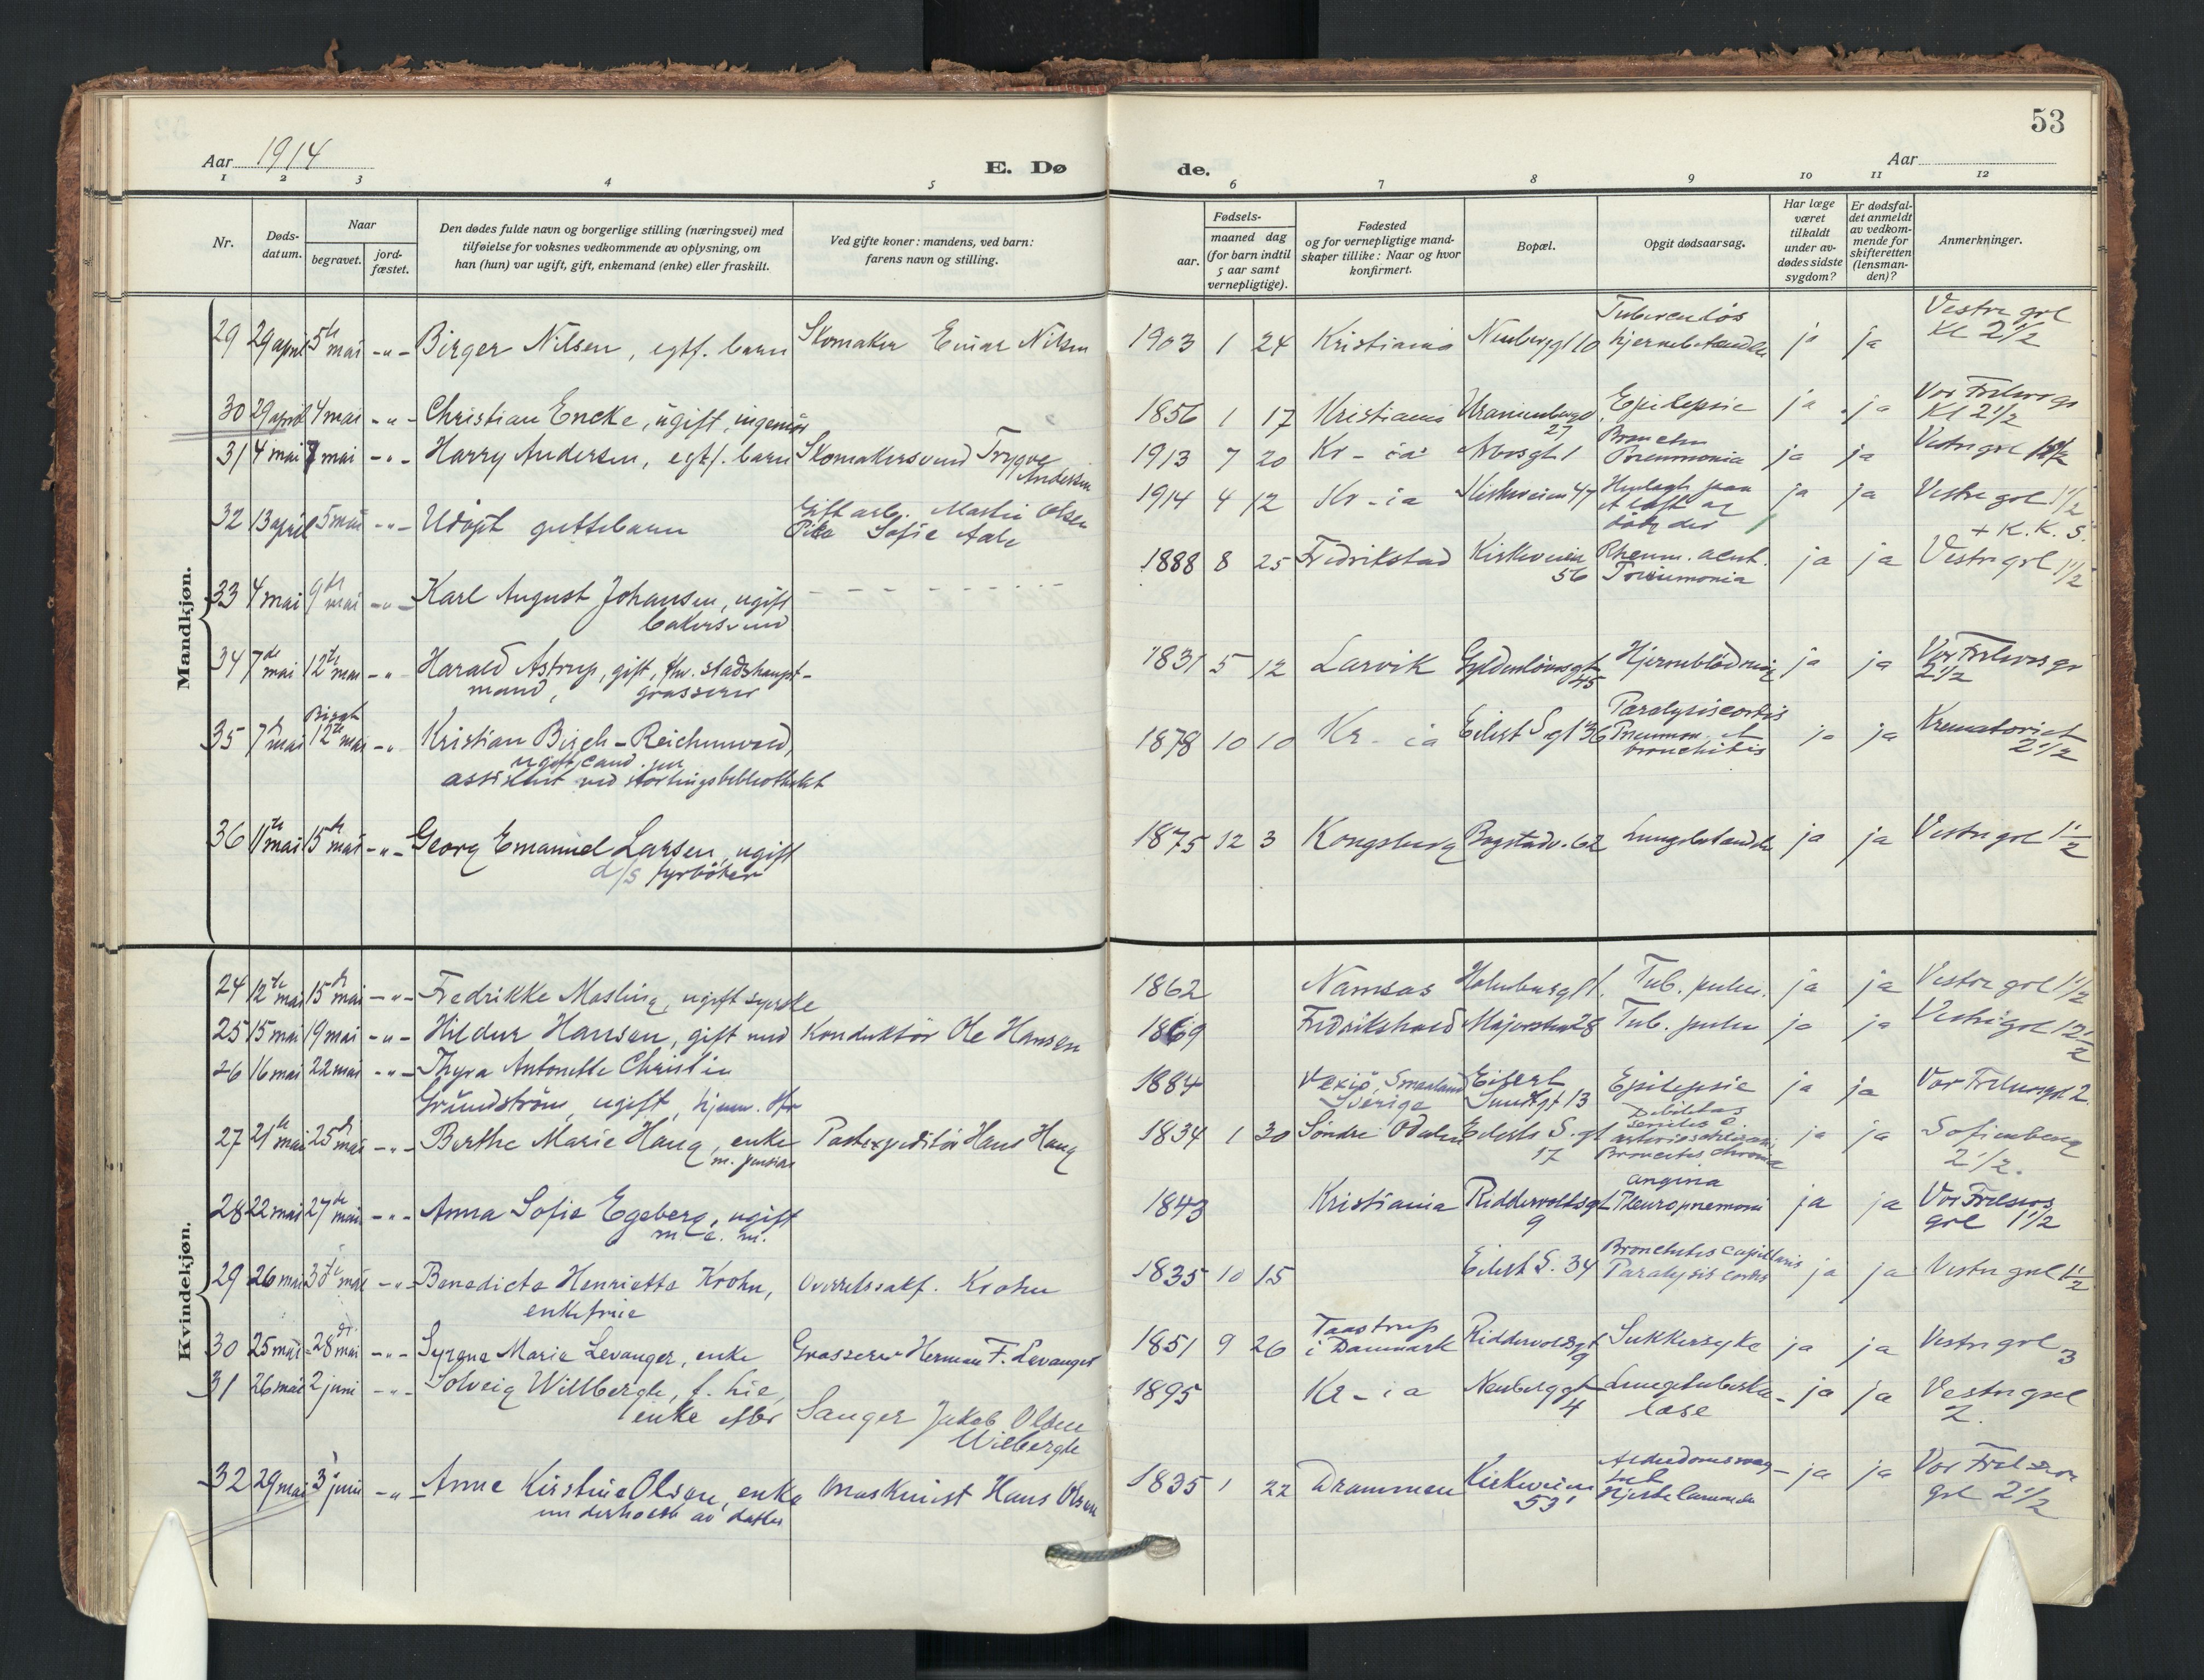 53
Aar 1914
E. Dø
de.
Aar
1 2 3 4 5 6 7 8 9 10 11 12
Nr.
Døds-
datum.
Naar
begravet.
jord-
fæstet.
Den dødes fulde navn og borgerlige stilling (næringsvei) med
tilføielse for voksnes vedkommende av oplysning, om
han (hun) var ugift, gift, enkemand (enke) eller fraskilt.
Ved gifte koner: mandens, ved barn:
farens navn og stilling.
Fødsels-
aar.
maaned dag
(for barn indtil
5 aar samt
vernepligtige).
Fødested
og for vernepligtige mand-
skaper tillike: Naar og hvor
konfirmert.
Bopæl.
Opgit dødsaarsag.
Har læge
været
tilkaldt
under av-
dødes sidste
sygdom?
Er dødsfal-
det anmeldt
av vedkom-
mende for
skifteretten
(lensman-
den)?
Anmerkninger.
Mandkjøn.
29 29 april 5te mai -"- Birger Nilsen, egtf. barn Skomaker Einar Nilsen 1903 1 24 Kristiania Neuberggt 10 Tuberculøs hjernebetændelse ja ja Vestre grl Kl 2 1/2
30 29 april 4 mai -"- Christian Encke, ugift, ingeniør 1856 1 17 Kristiania Uranienborgv 27 Epilepsie ja ja Vor Frelsers gr Kl 2 1/2
31 4 mai 7 mai -"- Harry Andersen, egtf. barn Skomakersvend Trygve Andersen 1913 7 20 Kr-ia Broncho Pneumonia ja ja Vestre grl
32 13 april 5 mai -"- Udøpt guttebarn Gift arb. Martin Olsen Pike Sofie 1914 4 12 Kr-ia Kirkeveien 47 ja ja Vestre grl 1 1/2
+ K. K. S.
33 4 mai 9de mai -"- Karl August Johansen, ugift
bakersvend 1888 8 25 Fredrikstad Kirkeveien 56 Rheum. acut. Pneumonia ja ja Vestre grl 1 1/2
34 7de mai 12te mai -"- Harald Astrup, gift, fhv. stadshaupt-
mand, grosserer 1831 5 12 Larvik Gyldenløvesgt 45 Hjerneblødning ja ja Vor Frelsers gr 2 1/2
35 7de mai Bisat 12te mai -"- Kristian Birch-Reichenwald,
ugift, cand. jur
assistent ved stortingsbibliotheket 1878 10 10 Kr-ia Eilert S. gt 36 Paralysis cordis Pneumon. et bronchitis ja ja Krematoriet 2 1/2
36 11te mai 15de mai -"- Georg Emanuel Larsen, ugift
d/s fyrbøter 1875 12 3 Kongsberg Bogstadv. 62 Lungebetændelse ja ja Vestre grl 1 1/2
Kvindekjøn.
24 12te mai 15de mai -"- Fredrikke Masling, ugift syerske 1862 Namsos Holmboesgt 1. Tub. pulm. ja ja Vestre grl 1 1/2
25 15 mai 19 mai -"- Hildur Hansen, gift med Konduktør Ole Hansen 1869 Fredrikshald Majorstuv 28 Tub. pulm ja ja Vestre grl
26 16 mai 22 mai -"- Thyra Antonette Christine
Grundstrøm, ugift, hjem. 1884 Vexiö, Smaaland Sverige Eilert Sundtgt 13 Epilepsie ja ja Vor Frelsers grl 2.
27 21de mai 25de mai -"- Berthe Marie Haug, enke
m. pension Postexpeditör Hans Haug 1834 1 30 Søndre Odalen Eilerts S. gt 17 Debilitas senilis e. arteriosclerose Bronchitis chronica ja ja Sofienberg 2 1/2.
28 22 mai 27de mai -"- Anna Sofie Egeberg, ugift
1843 Kristiania Riddervoldsgt 9 angina Pleuropnemoni ja ja Vor Frelsers grl 1 1/2
29 26 mai 30te mai -"- Benedicte Henriette Krohn,
enkefrue Overretssakf. Krohn 1835 10 15 Eilert S. 34 Bronchitis capillaris Paralysis cordis ja ja Vestre grl 1 1/2
30 25 mai 28de mai -"- Syrene Marie Levanger, enke Grosserer Herman F. Levanger 1851 9 26 Taastrup i Danmark Riddervoldsgt 9 Sukkersyke ja ja Vestre grl 3
31 26 mai 2 juni -"- Solveig Willbergh, f. Lie,
enke efter Sanger Jakob Olsen Wilbergh 1895 Kr-ia Neuberggt 4 Lungetuberkulose ja ja Vestre grl 2.
32 29 mai 3 juni -"- Anne Kirstine Olsen, enke
underholdt av datter Maskinist Hans Olsen 1835 1 22 Drammen Kirkeveien 53 ja ja Vor Frelsers grl 2 1/2